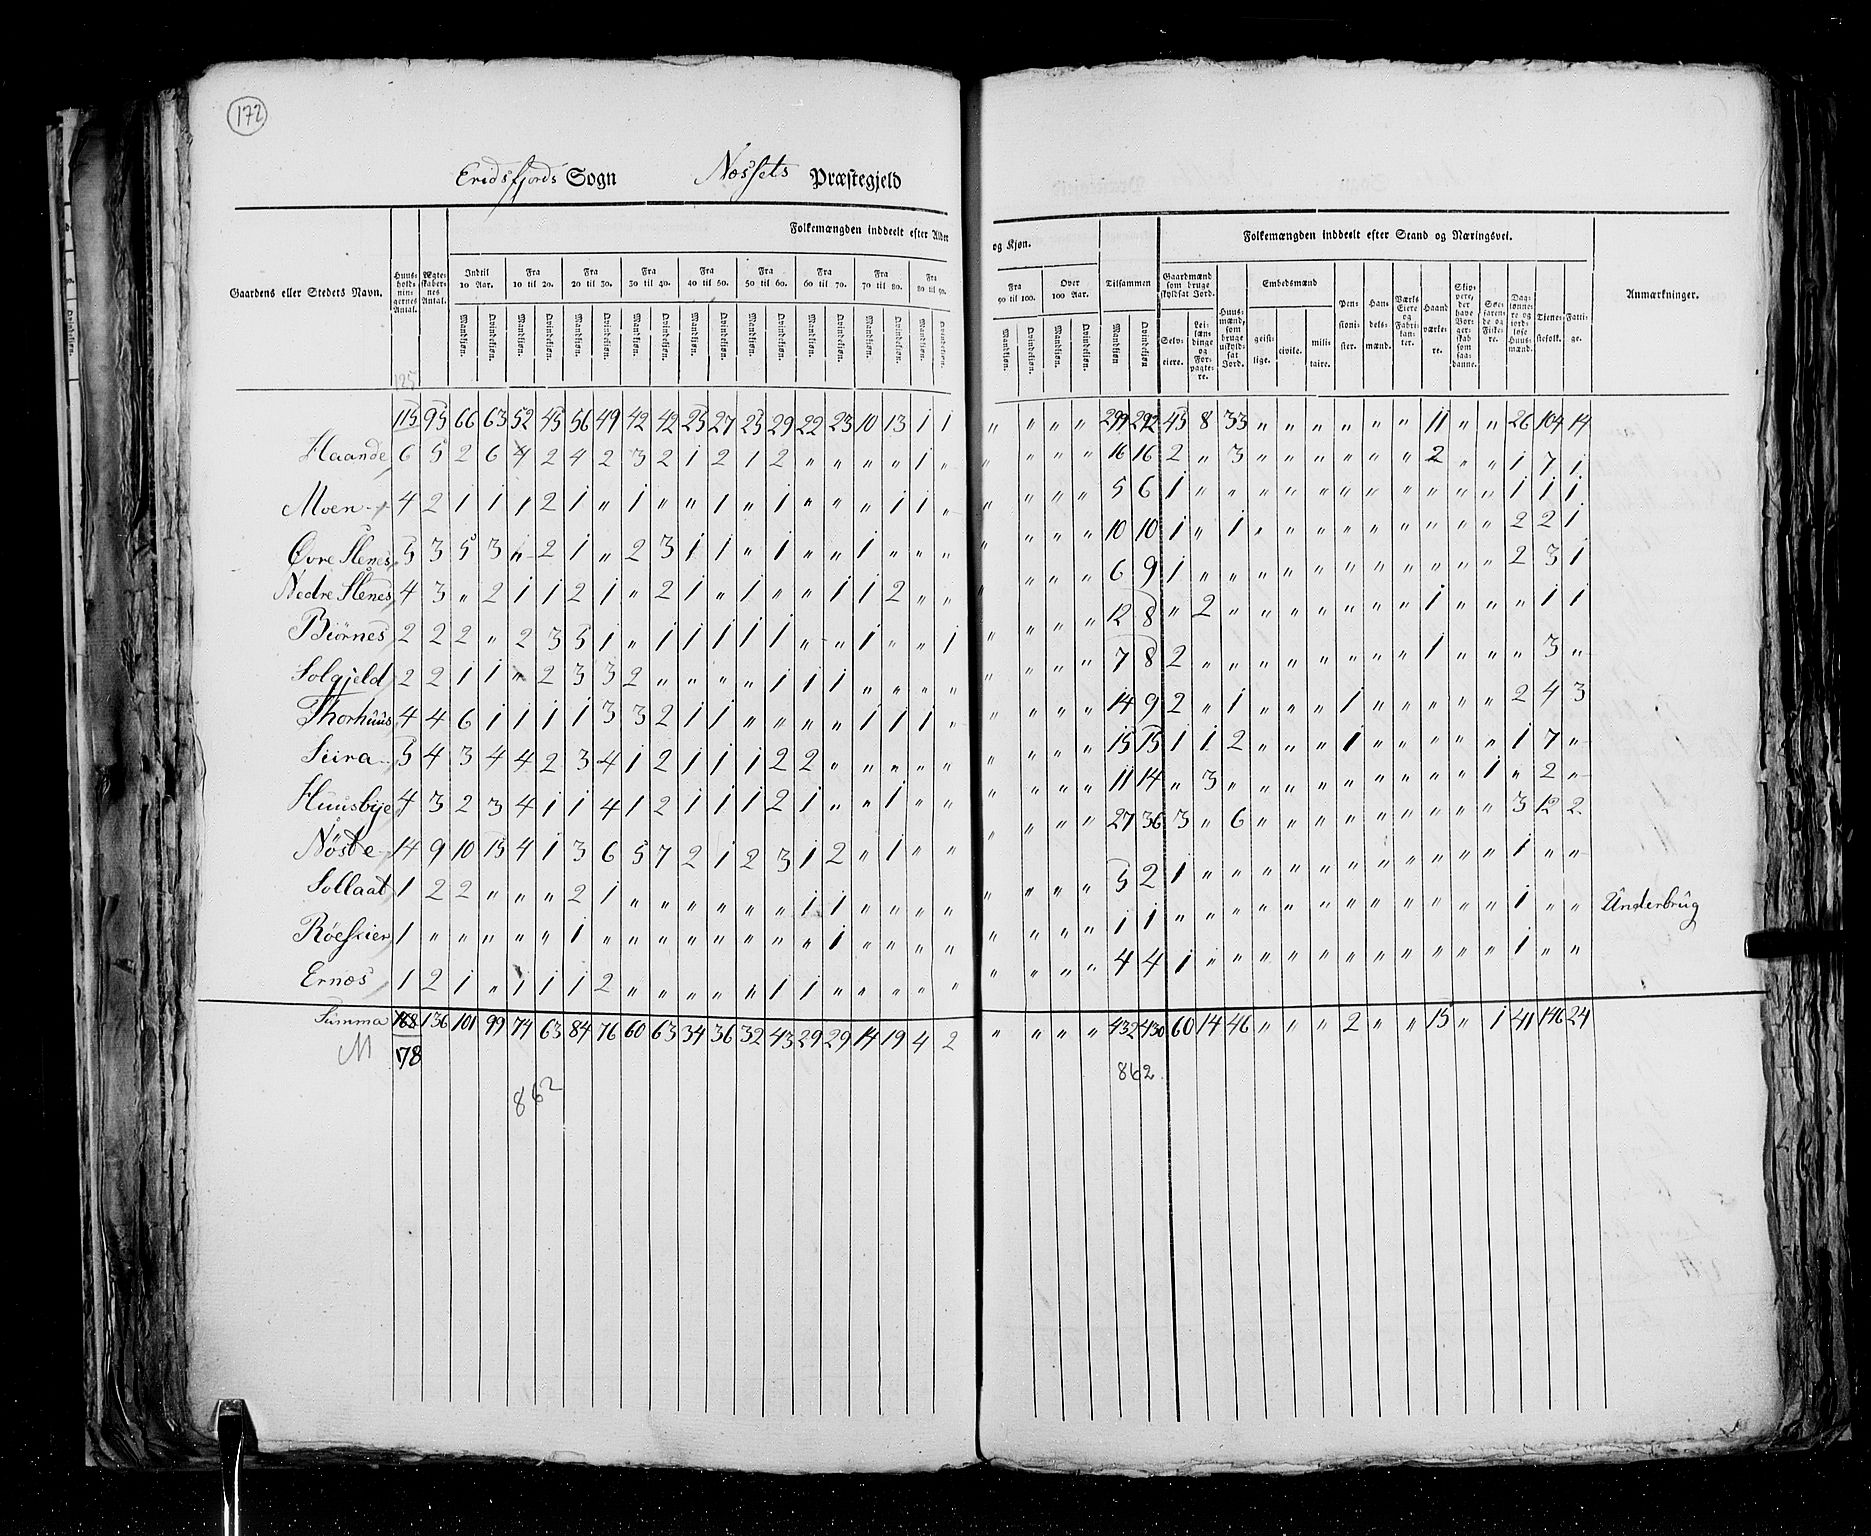 172
Eridsfjords Sogn Næssets Præstegjeld
Folkemængden inddeelt efter Alder og Kjøn. Folkemængden inddeelt efter Stand og Næringsvei.
Gaardens eller Stedets Navn. Huus-holdnin-gernes Antal. Ægte-skaber-nes Antal. Indtil 10 Aar. Fra 10 til 20. Fra 20 til 30. Fra 30 til 40. Fra 40 til 50. Fra 50 til 60. Fra 60 til 70. Fra 70 til 80. Fra 80 til 90. Fra 90 til 100. Over 100 Aar. Tilsammen Gaardmænd som bruge skyldsat Jord. Huus-mænd, som bruge uskyld-sat Jord. Embedsmænd Pen-sioni-ster. Han-dels-mænd. Værks Eiere og Fabri-kan-ter. Haand værke-re. Skip-pere, der have Bor-ger-skab som saa-danne. Søe-faren-de og Fiske-re. Dag-lønne-re og jord-løse Huus-mænd. Tiene-stefolk. Fatti-ge. Anmærkninger.
Mandkjøn. Qvindekjøn. Mandkjøn. Qvindekjøn. Mandkjøn. Qvindekjøn. Mandkjøn. Qvindekjøn. Mandkjøn. Qvindekjøn. Mandkjøn. Qvindekjøn. Mandkjøn. Qvindekjøn. Mandkjøn. Qvindekjøn. Mandkjøn. Qvindekjøn. Mandkjøn. Qvindekjøn. Mandkjøn. Qvindekjøn. Mandkjøn Qvindekjøn Selv-eiere. Lei-lænd-dinge og For-pagte-re. geist-lige. civile. mili-taire.
125
115 95 66 63 52 45 56 49 42 42 25 27 25 29 22 23 10 13 1 1 " " " " 299 292 45 8 33 " " " " " " 11 " " 26 104 14
Haande 6 5 2 6 4 2 4 2 3 2 1 2 1 2 " " " " 1 " " " " " 16 16 2 " 3 " " " " " " 2 " " 1 7 1
Moen 4 2 1 1 1 2 1 " 1 " " 1 " 1 " " " 1 1 " " " " " 5 6 1 " " " " " " " " " " " 1 1 1
Øvre Slenes 5 3 5 3 " 2 1 " 2 3 1 1 " 1 " " 1 " " " " " " " 10 10 1 " 1 " " " " " " " " " 2 2 1
Nedre Slenes 4 3 " 2 1 1 2 1 " 2 1 " 1 " " 1 1 2 " " " " " " 6 9 1 " " " " " " " " " " " 2 3 1
Biørnes 2 2 2 " 2 3 5 1 " 1 1 1 1 1 " " 1 " " 1 " " " " 12 8 " 2 " " " " " " " 1 " " " 1 1
Solgjeld 2 2 1 1 " 2 3 3 2 " " " " 1 1 1 " " " " " " " " 7 8 2 " " " " " " " " 1 " " " 3 "
Thorhuus 4 4 6 1 1 1 1 3 3 2 1 1 " " " " 1 1 1 " " " " " 14 9 2 " 1 " " " 1 " " " " " 2 4 3
Siira 5 4 3 4 4 2 3 4 1 2 1 1 1 2 2 " " " " " " " " " 15 15 1 1 2 " " " 1 " " " " " 1 7 "
Huusbye 4 3 2 3 4 1 1 4 1 2 1 1 1 2 1 " " 1 " " " " " " 11 14 " 3 " " " " " " " " " 1 " 2 "
Nöste 14 9 10 15 4 1 3 6 5 7 2 1 2 3 1 2 " 1 " " " " " " 27 36 3 " 6 " " " " " " " " " 3 12 2
Sollaat 1 2 2 " " " 2 1 " " " " " " 1 1 " " " " " " " " 5 2 1 " " " " " " " " " " " 1 " "
Röeskier 1 " " " " " 1 " " " " " " " " 1 " " " " " " " " 1 1 " " " " " " " " " " " " 1 " " Underbrug
Ernæs 1 2 1 " 1 1 1 2 " " " " " 1 1 " " " " " " " " " 4 4 1 " " " " " " " " " " " 1 " "
Summa 168 136 101 99 74 63 84 76 60 63 34 36 32 43 29 29 14 19 4 2 " " " " 432 430 60 14 46 " " " 2 " " 15 " 1 41 146 24
M 178 862
862